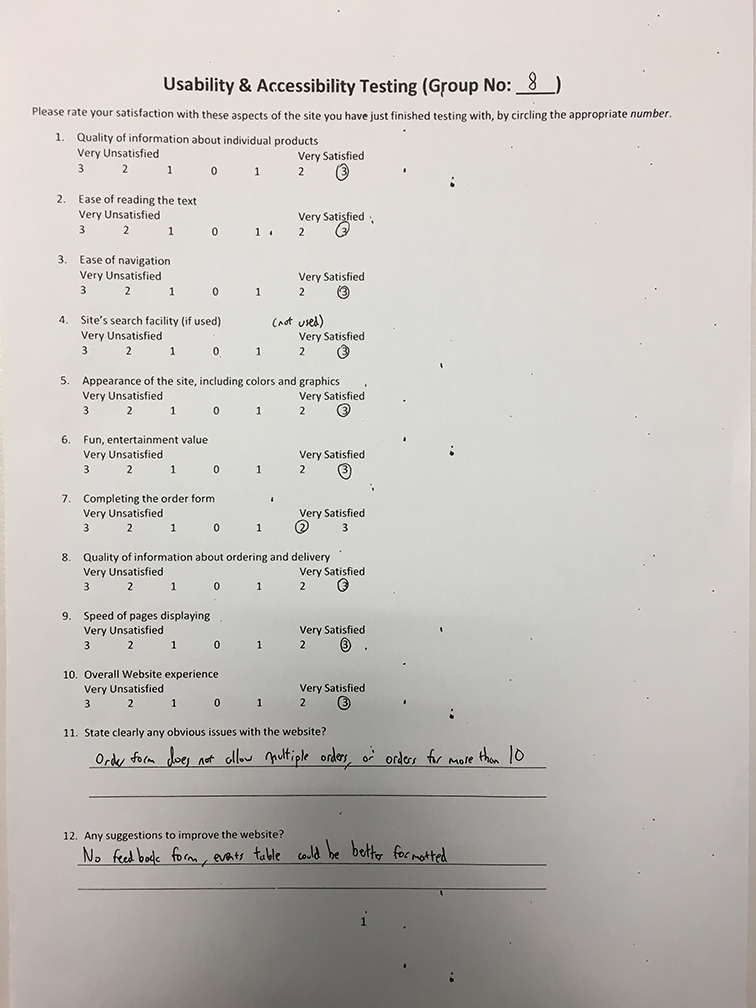 Usability & Accessibility Testing (Group No: 8)
Please rate your satisfaction with these aspects of the site you have just finished testing with, by circling the appropriate number.
1. Quality of information about individual products
Very Unsatisfied Very Satisfied
3 2 1 0 1 2 3
2. Ease of reading the text
Very Unsatisfied Very Satisfied
3 2 1 0 1 2 3
3. Ease of navigation
Very Unsatisfied Very Satisfied
3 2 1 0 1 2 3
4. Site's search facility (if used) (not used)
Very Unsatisfied Very Satisfied
3 2 1 0 1 2 3
5. Appearance of the site, including colors and graphics
Very Unsatisfied Very Satisfied
3 2 1 0 1 2 3
6. Fun, entertainment value
Very Unsatisfied Very Satisfied
3 2 1 0 1 2 3
7. Completing the order form
Very Unsatisfied Very Satisfied
3 2 1 0 1 2 3
8. Quality of information about ordering and delivery
Very Unsatisfied Very Satisfied
3 2 1 0 1 2 3
9. Speed of pages displaying
Very Unsatisfied Very Satisfied
3 2 1 0 1 2 3
10. Overall Website experience
Very Unsatisfied Very Satisfied
3 2 1 0 1 2 3
11. State clearly any obvious issues with the website?
Order form does not allow multiple orders, or orders for more than 10
12. Any suggestions to improve the website?
No feedback form, events table could be better formatted
1